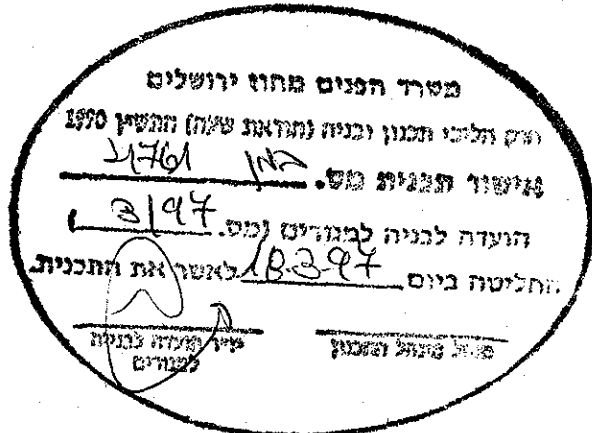 משרד הפנים מחוז ירושלים
חוק הליכי תכנון ובניה (הוראת שעה) התש"ן 1990
אישור תכנית מס.
הועדה לבניה למגורים (מס. 3/97
החליטה ביום 18-3-97 לאשר את התכנית.
מנהל מינהל התכנון
יו"ר הועדה לבניה
למגורים